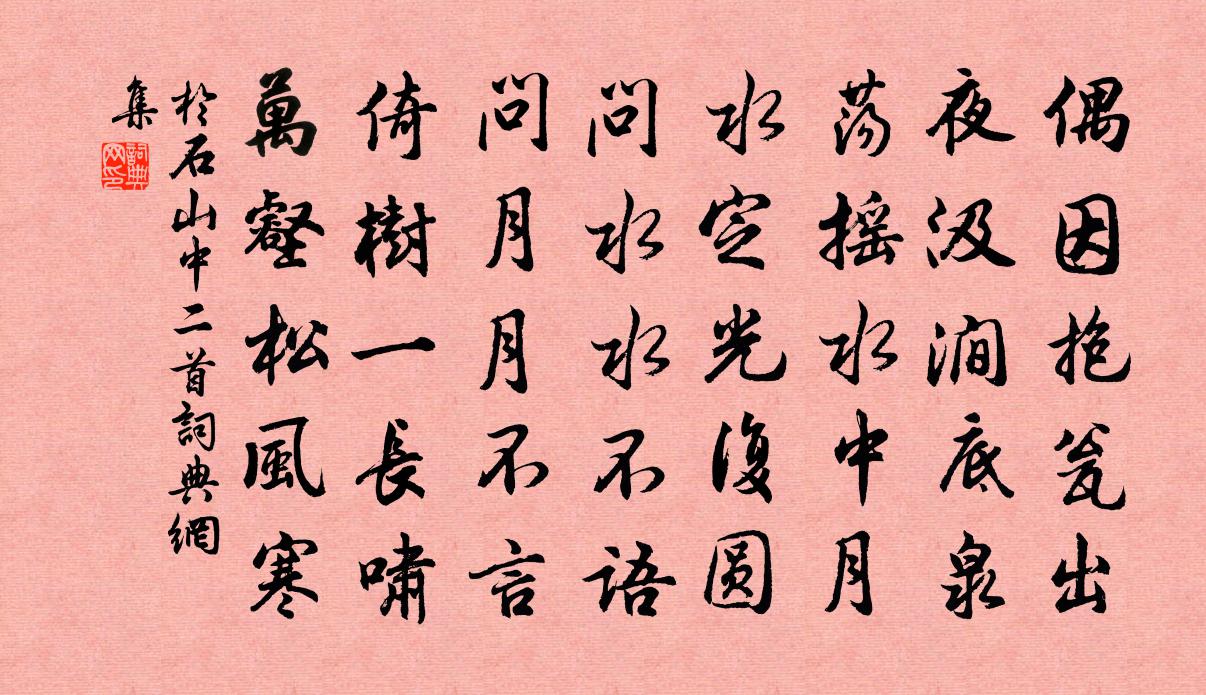 偶因抱瓮出
夜汲涧底泉
荡摇水中月
水定光復圆
问水水不语
问月月不言
倚樹一長嘯
萬壑松風寒
於石山中二首詞典網
集
詞典
网印